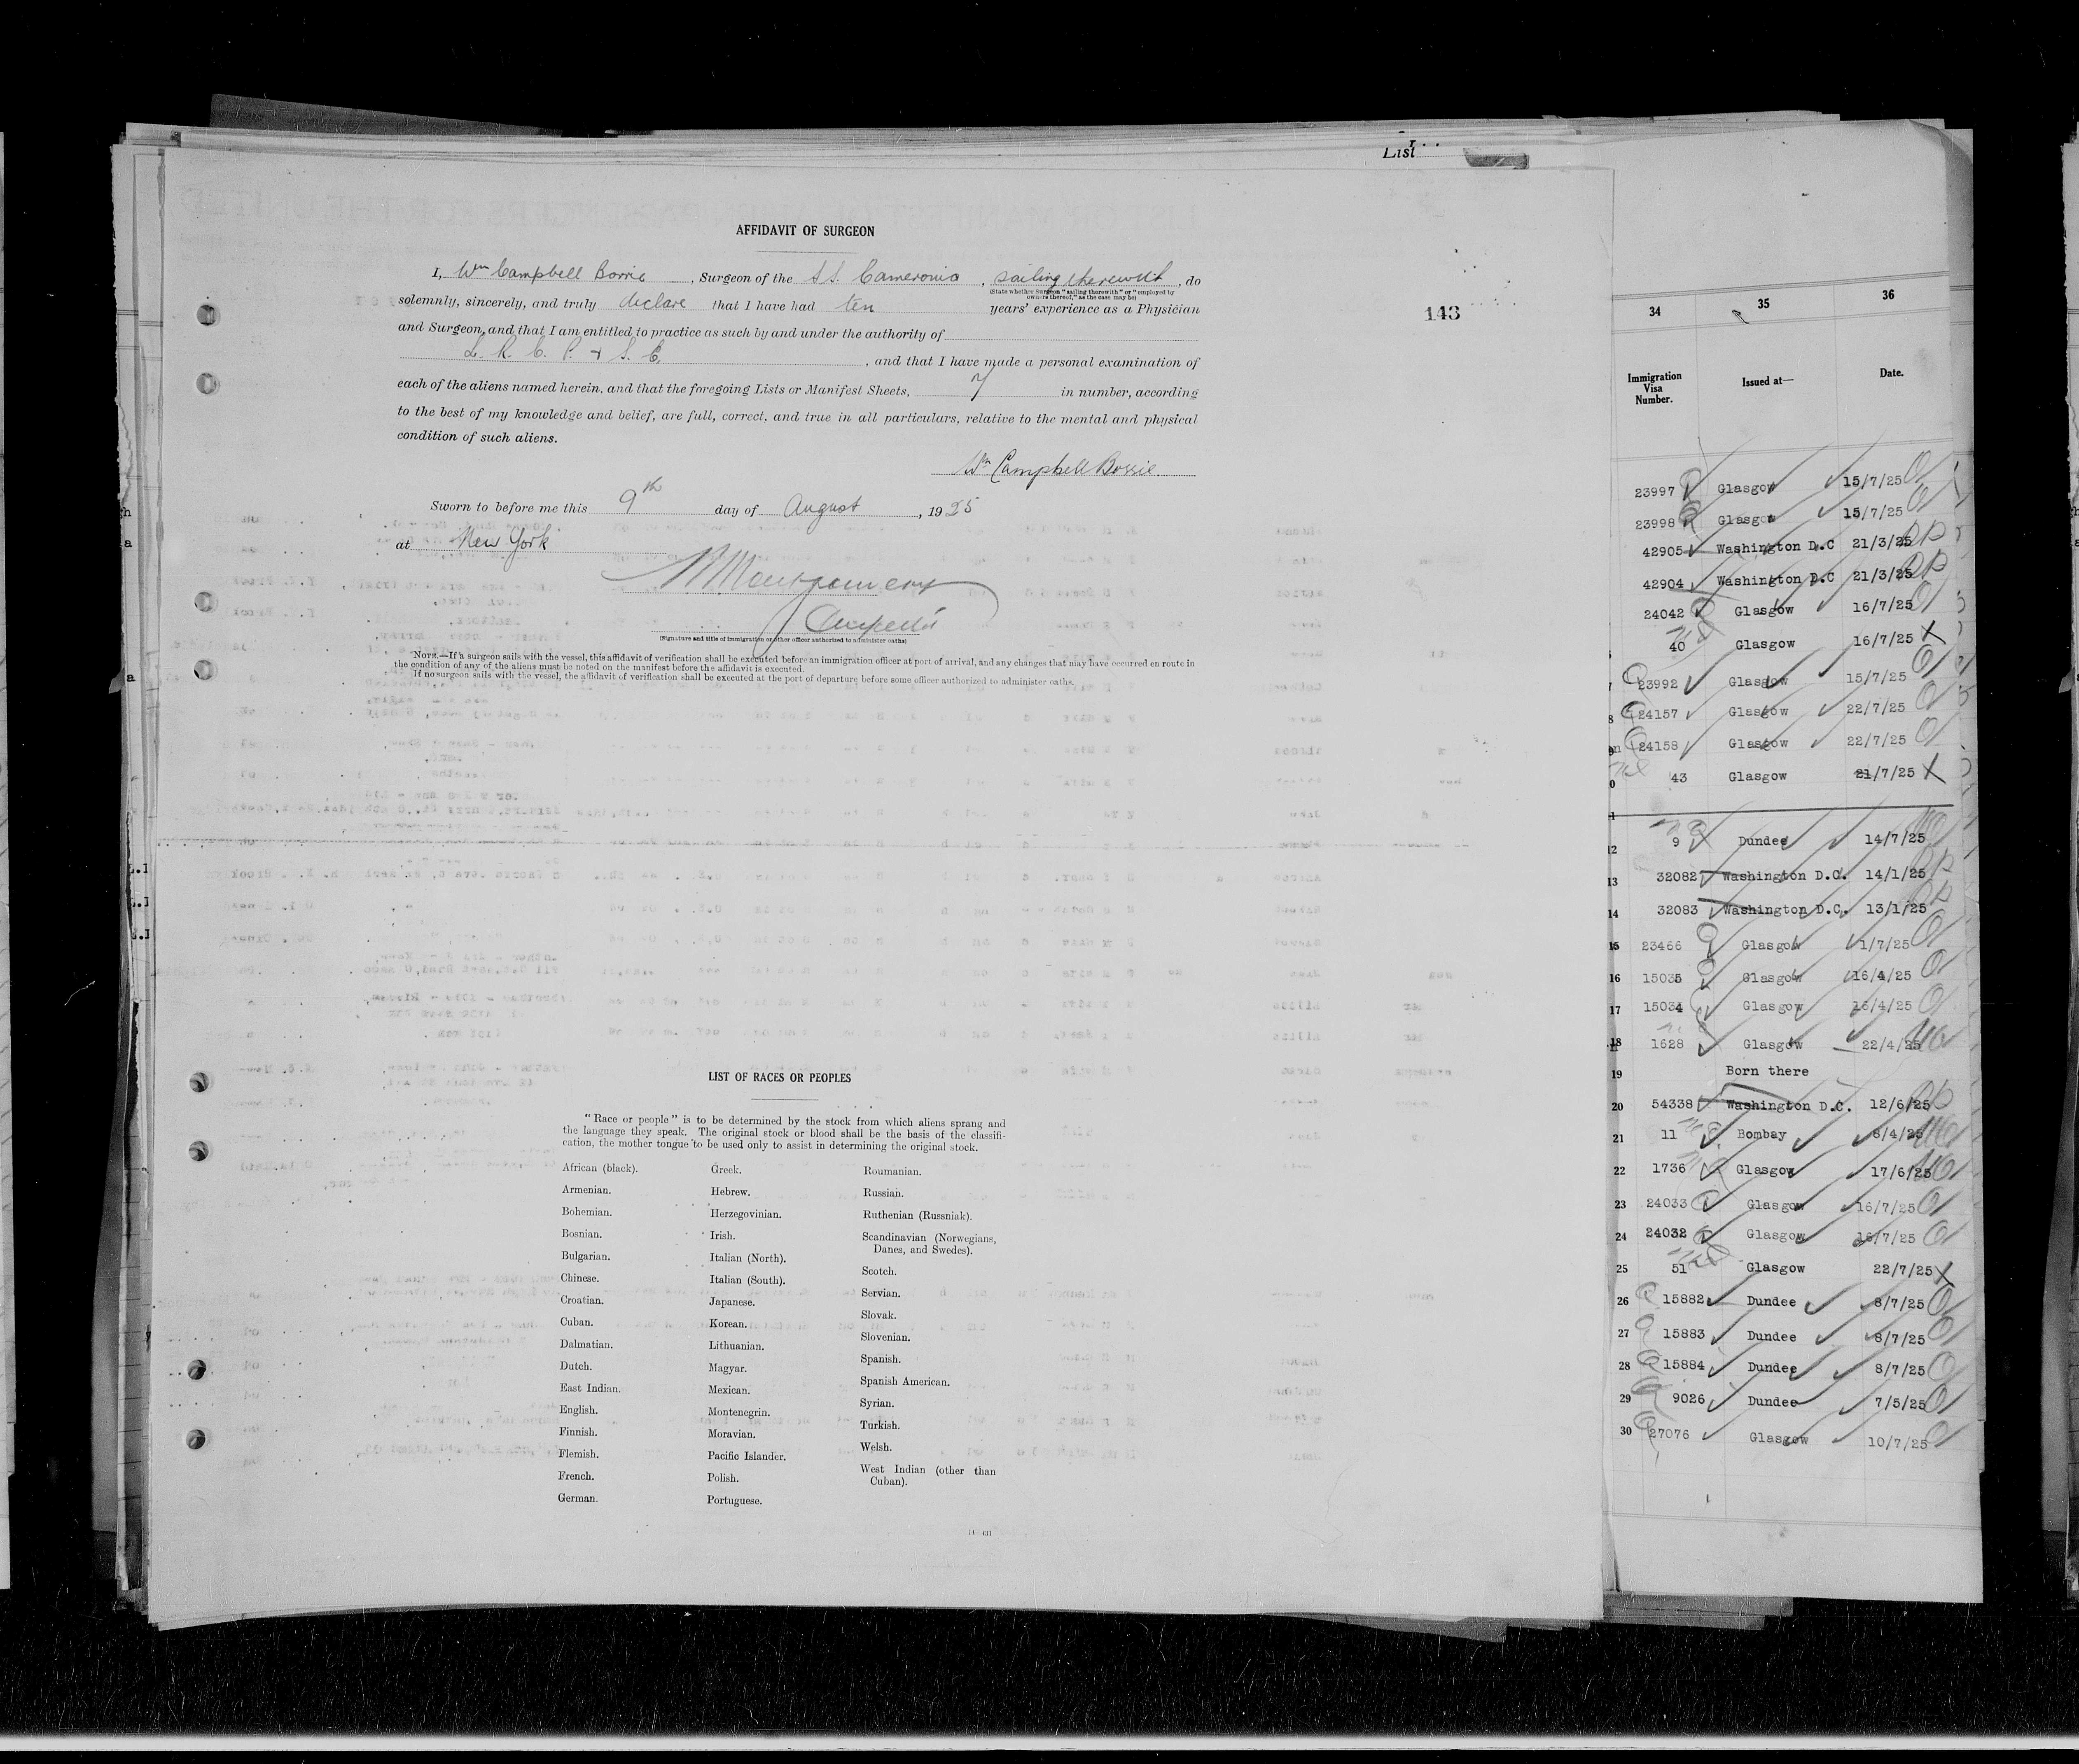 List
AFFIDAVIT OF SURGEON
I, Wm Campbell Borrie, Surgeon of the S.S. Cameronia, sailing therewith, do
(State whether Surgeon "sailing therewith" or "employed by
owners thereof," as the case may be)
solemnly, sincerely, and truly declare that I have had ten years' experience as a Physician
and Surgeon, and that I am entitled to practice as such by and under the authority of
L. R. C. P. + S. E., and that I have made a personal examination of
each of the aliens named herein, and that the foregoing Lists or Manifest Sheets, 7 in number, according
to the best of my knowledge and belief, are full, correct, and true in all particulars, relative to the mental and physical
condition of such aliens.
Wm Campbell Borrie
Sworn to before me this 9th day of August, 1925
at New York
Montgomery
(Signature and title of immigration or other officer authorized to administer oaths)
NOTE.—If a surgeon sails with the vessel, this affidavit of verification shall be executed before an immigration officer at port of arrival, and any changes that may have occurred en route in
the condition of any of the aliens must be noted on the manifest before the affidavit is executed.
If no surgeon sails with the vessel, the affidavit of verification shall be executed at the port of departure before some officer authorized to administer oaths.
143
LIST OF RACES OR PEOPLES
"Race or people" is to be determined by the stock from which aliens sprang and
the language they speak. The original stock or blood shall be the basis of the classifi-
cation, the mother tongue to be used only to assist in determining the original stock.
African (black).
Armenian.
Bohemian.
Bosnian.
Bulgarian.
Chinese.
Croatian.
Cuban.
Dalmatian.
Dutch.
East Indian.
English.
Finnish.
Flemish.
French.
German.
Greek.
Hebrew.
Herzegovinian.
Irish.
Italian (North).
Italian (South).
Japanese.
Korean.
Lithuanian.
Magyar.
Mexican.
Montenegrin.
Moravian.
Pacific Islander.
Polish.
Portuguese.
Roumanian.
Russian.
Ruthenian (Russniak).
Scandinavian (Norwegians,
Danes, and Swedes).
Scotch.
Servian.
Slovak.
Slovenian.
Spanish.
Spanish American.
Syrian.
Turkish.
Welsh.
West Indian (other than
Cuban).
34 35 36
Immigration
Visa
Number.
Issued at—
Date.
23997 Glasgow 15/7/25
23998 Glasgow 15/7/25
42905 Washington D.C 21/3/25
42904 Washington D.C 21/3/25
24042 Glasgow 16/7/25
40 Glasgow 16/7/25
23992 Glasgow 15/7/25
8 24157 Glasgow 22/7/25
24158 Glasgow 22/7/25
0 43 Glasgow 21/7/25
12 9 Dundee 14/7/25
13 32082 Washington D.C. 14/1/25
14 32083 Washington D.C. 13/1/25
15 23466 Glasgow 1/7/25
16 15035 Glasgow 16/4/25
17 15034 Glasgow 16/4/25
18 1628 Glasgow 22/4/25
19 Born there
20 54338 Washington D.C. 12/6/25
21 11 Bombay 8/4/25
22 1736 Glasgow 17/6/25
23 24033 Glasgow 16/7/25
24 24032 Glasgow 16/7/25
25 51 Glasgow 22/7/25
26 15882 Dundee 8/7/25
27 15883 Dundee 8/7/25
28 15884 Dundee 8/7/25
29 9026 Dundee 7/5/25
30 27076 Glasgow 10/7/25